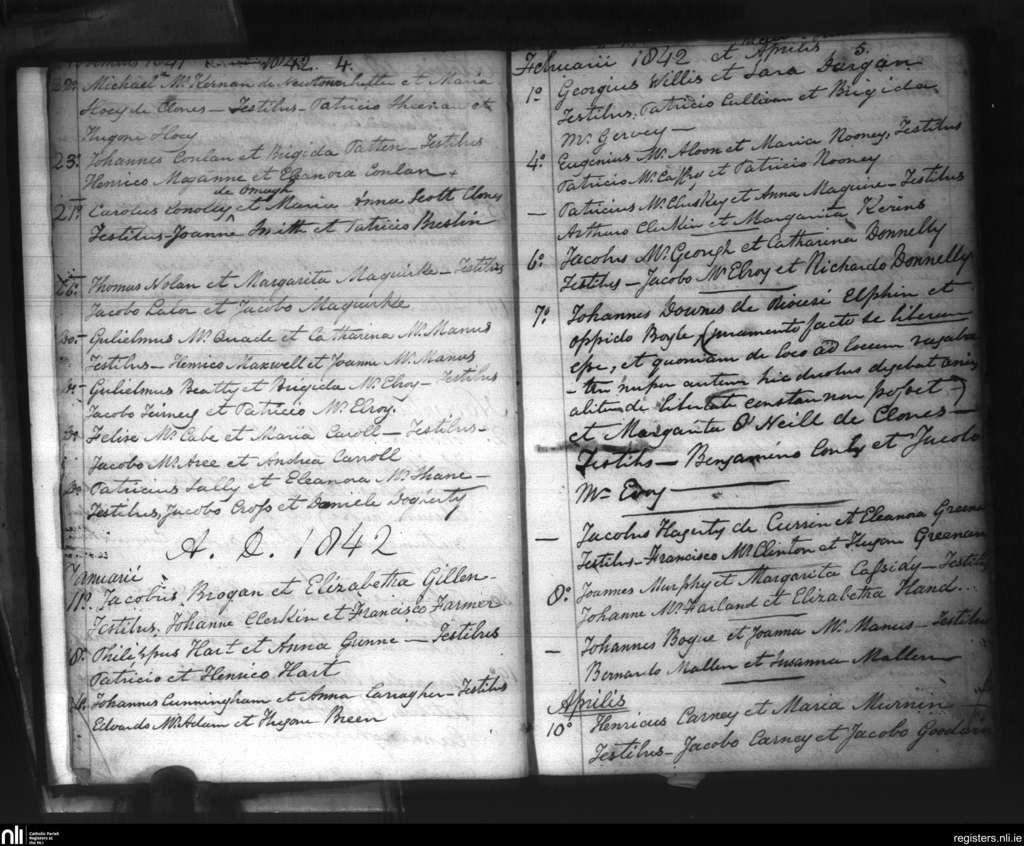 1842. 4.
22° Michael Mc Kernan de Newtownbutler et Maria
Hoey de Clones — Testibus — Patricio Sheenan et
Hugone Hoey
23° Johannes Conlan et Brigida Patten — Testibus
Henrico Maganne et Eleanora Conlan
de Omagh
Carolus Conolly et Maria Anna Scott Clones
Testibus — Joanne Smith et Patricio Breslin
26° Thomas Nolan et Margarita Maguirke — Testibus
Jacobo Lalor et Jacobo Maguirke
30 — Gulielmus Mc Quade et Catharina Mc Manus
Testibus — Henrico Maxwell et Joanne Mc Manus
Gulielmus Beatty et Brigida Mc Elroy — Testibus
Jacobo Turney et Patricio Mc Elroy.
Felix Mc Cabe et Maria Caroll — Testibus —
Jacobo Mc Aree et Andrea Carroll
Patricius Lally et Eleanora Mc Shane —
Testibus, Jacobo Cross et Daniele Dogherty
A. D. 1842
Januarii
11° Jacobus Brogan et Elizabetha Gillen —
Testibus, Johanne Clerkin et Francisco Farmer
Philippus Hart et Anna Gunne — Testibus
Patricio et Henrico Hart
Johannes Cunningham et Anna Carragher — Testibus
Edvardo Mc Adam et Hugone Breen
Februarii 1842 et Aprilis 5.
1° Georgius Willis et Sara Dargan
Testibus, Patricio Cullivan et Brigida
Mc Gervey —
4° Eugenius Mc Aloon et Maria Rooney, Testibus
Patricio Mc Caffry et Patricio Rooney
— Patricius Mc Cluskey et Anna Maguire — Testibus
Arthuro Clerkin et Margarita Kerins
6° Jacobus Mc Geough et Catharina Donnelly
Testibus — Jacobo Mc Elroy et Richardo Donnelly
7° Johannes Downes de Diocesi Elphin et
oppido Boyle (juramento facto se liberum
esse, et quoniam de loco ad locum
nuper autem hic degebat
aliunde libertate constare non posset)
et Margarita O'Neill de Clones —
Testibs — Benjamino et Jacobo
Mc Evoy —
— Jacobus Hagerty de Currin et Eleanora Greenan
Testibus — Francisco Mc Clinton et Hugone Greenan
8° Joannes Murphy et Margarita Cassidy — Testibus
Johanne Mc Farland et Elizabetha Hand...
— Johannes Bogue et Joanna Mc Manus — Testibus
Bernardo Mallen et Susanna Mallen
Aprilis
10° Henricus Carney et Maria Murnin —
Testibus — Jacobo Carney et Jacobo Goodwin
nli
Catholic Parish
Registers at
the NLI
registers.nli.ie